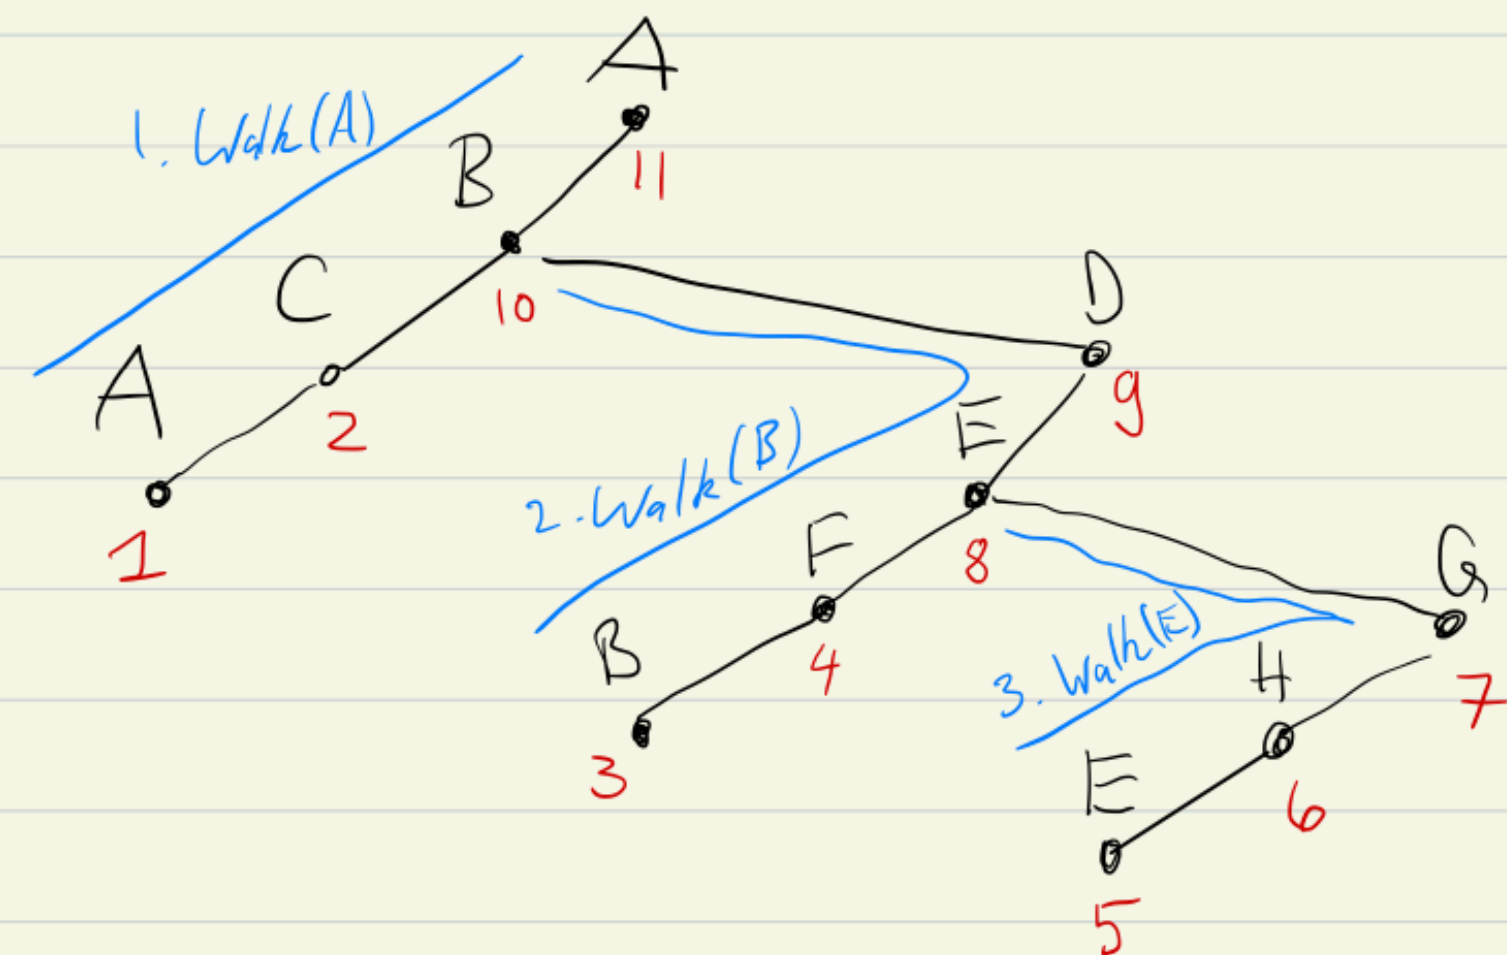 A
1. Walk(A)
11
B
C
10
D
A
2
9
E
2. Walk(B)
1
F
8
G
B
4
3. Walk(E)
H
7
3
E
6
5